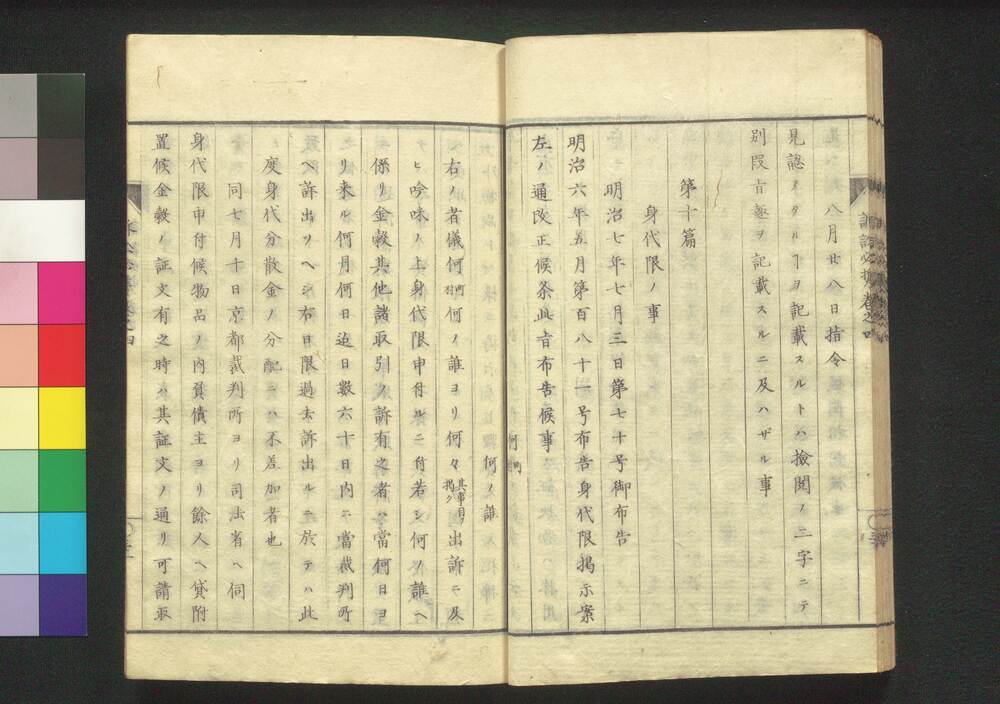 八月廿八日指令
見認メタルヿヲ記載スルトハ撿閲ノ二字ニテ
別段旨趣ヲ記載スルニ及ハザル事
第十篇
身代限ノ事
明治七年七月三日第七十号御布告
明治六年五月第百八十一号布告身代限揭示案
左ノ通改正候条此旨布告候事
何町
何ノ誰
右ノ者儀何町何ノ誰ヨリ何々其事由ヲ揭ク出訴ニ及
ヒ吟味ノ上身代限申付ルニ付若シ何ノ誰ヘ
係リ金穀其他諸取引ノ訴有之者ハ當何日ヨ
リ来ル何月何日迄日數六十日内ニ當裁判所
ヘ訴出ツヘシ右日限過去訴出ルニ於テハ此
度身代分散金ノ分配ニハ不差加者也
同七月十日京都裁判所ヨリ司法省ヘ伺
身代限申付候物品ノ内負債主ヨリ餘人ヘ貸附
置候金穀ノ証文有之時ハ其証文ノ通リ可請取